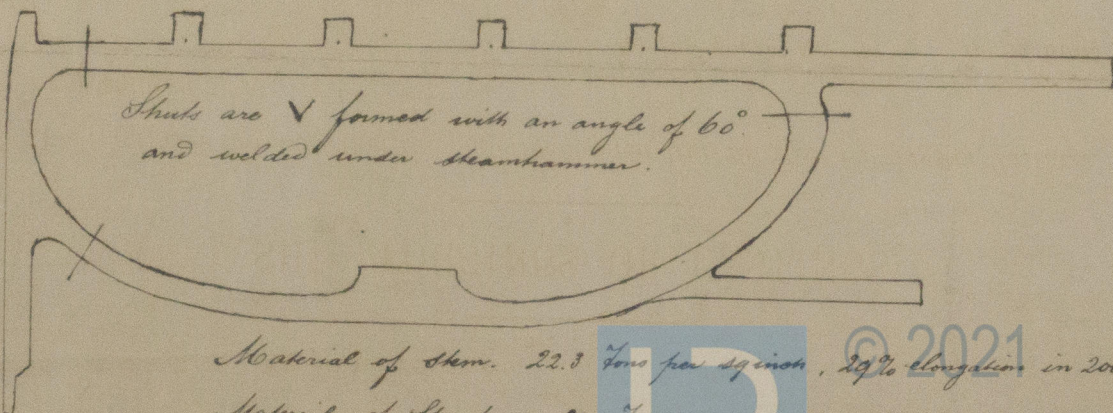 Shuts are V formed with an angle of 60°
and welded under steamhammer.
Material of stem. 22.3 Tons per sq inch, 29% elongation in 20
© 2021
Material of